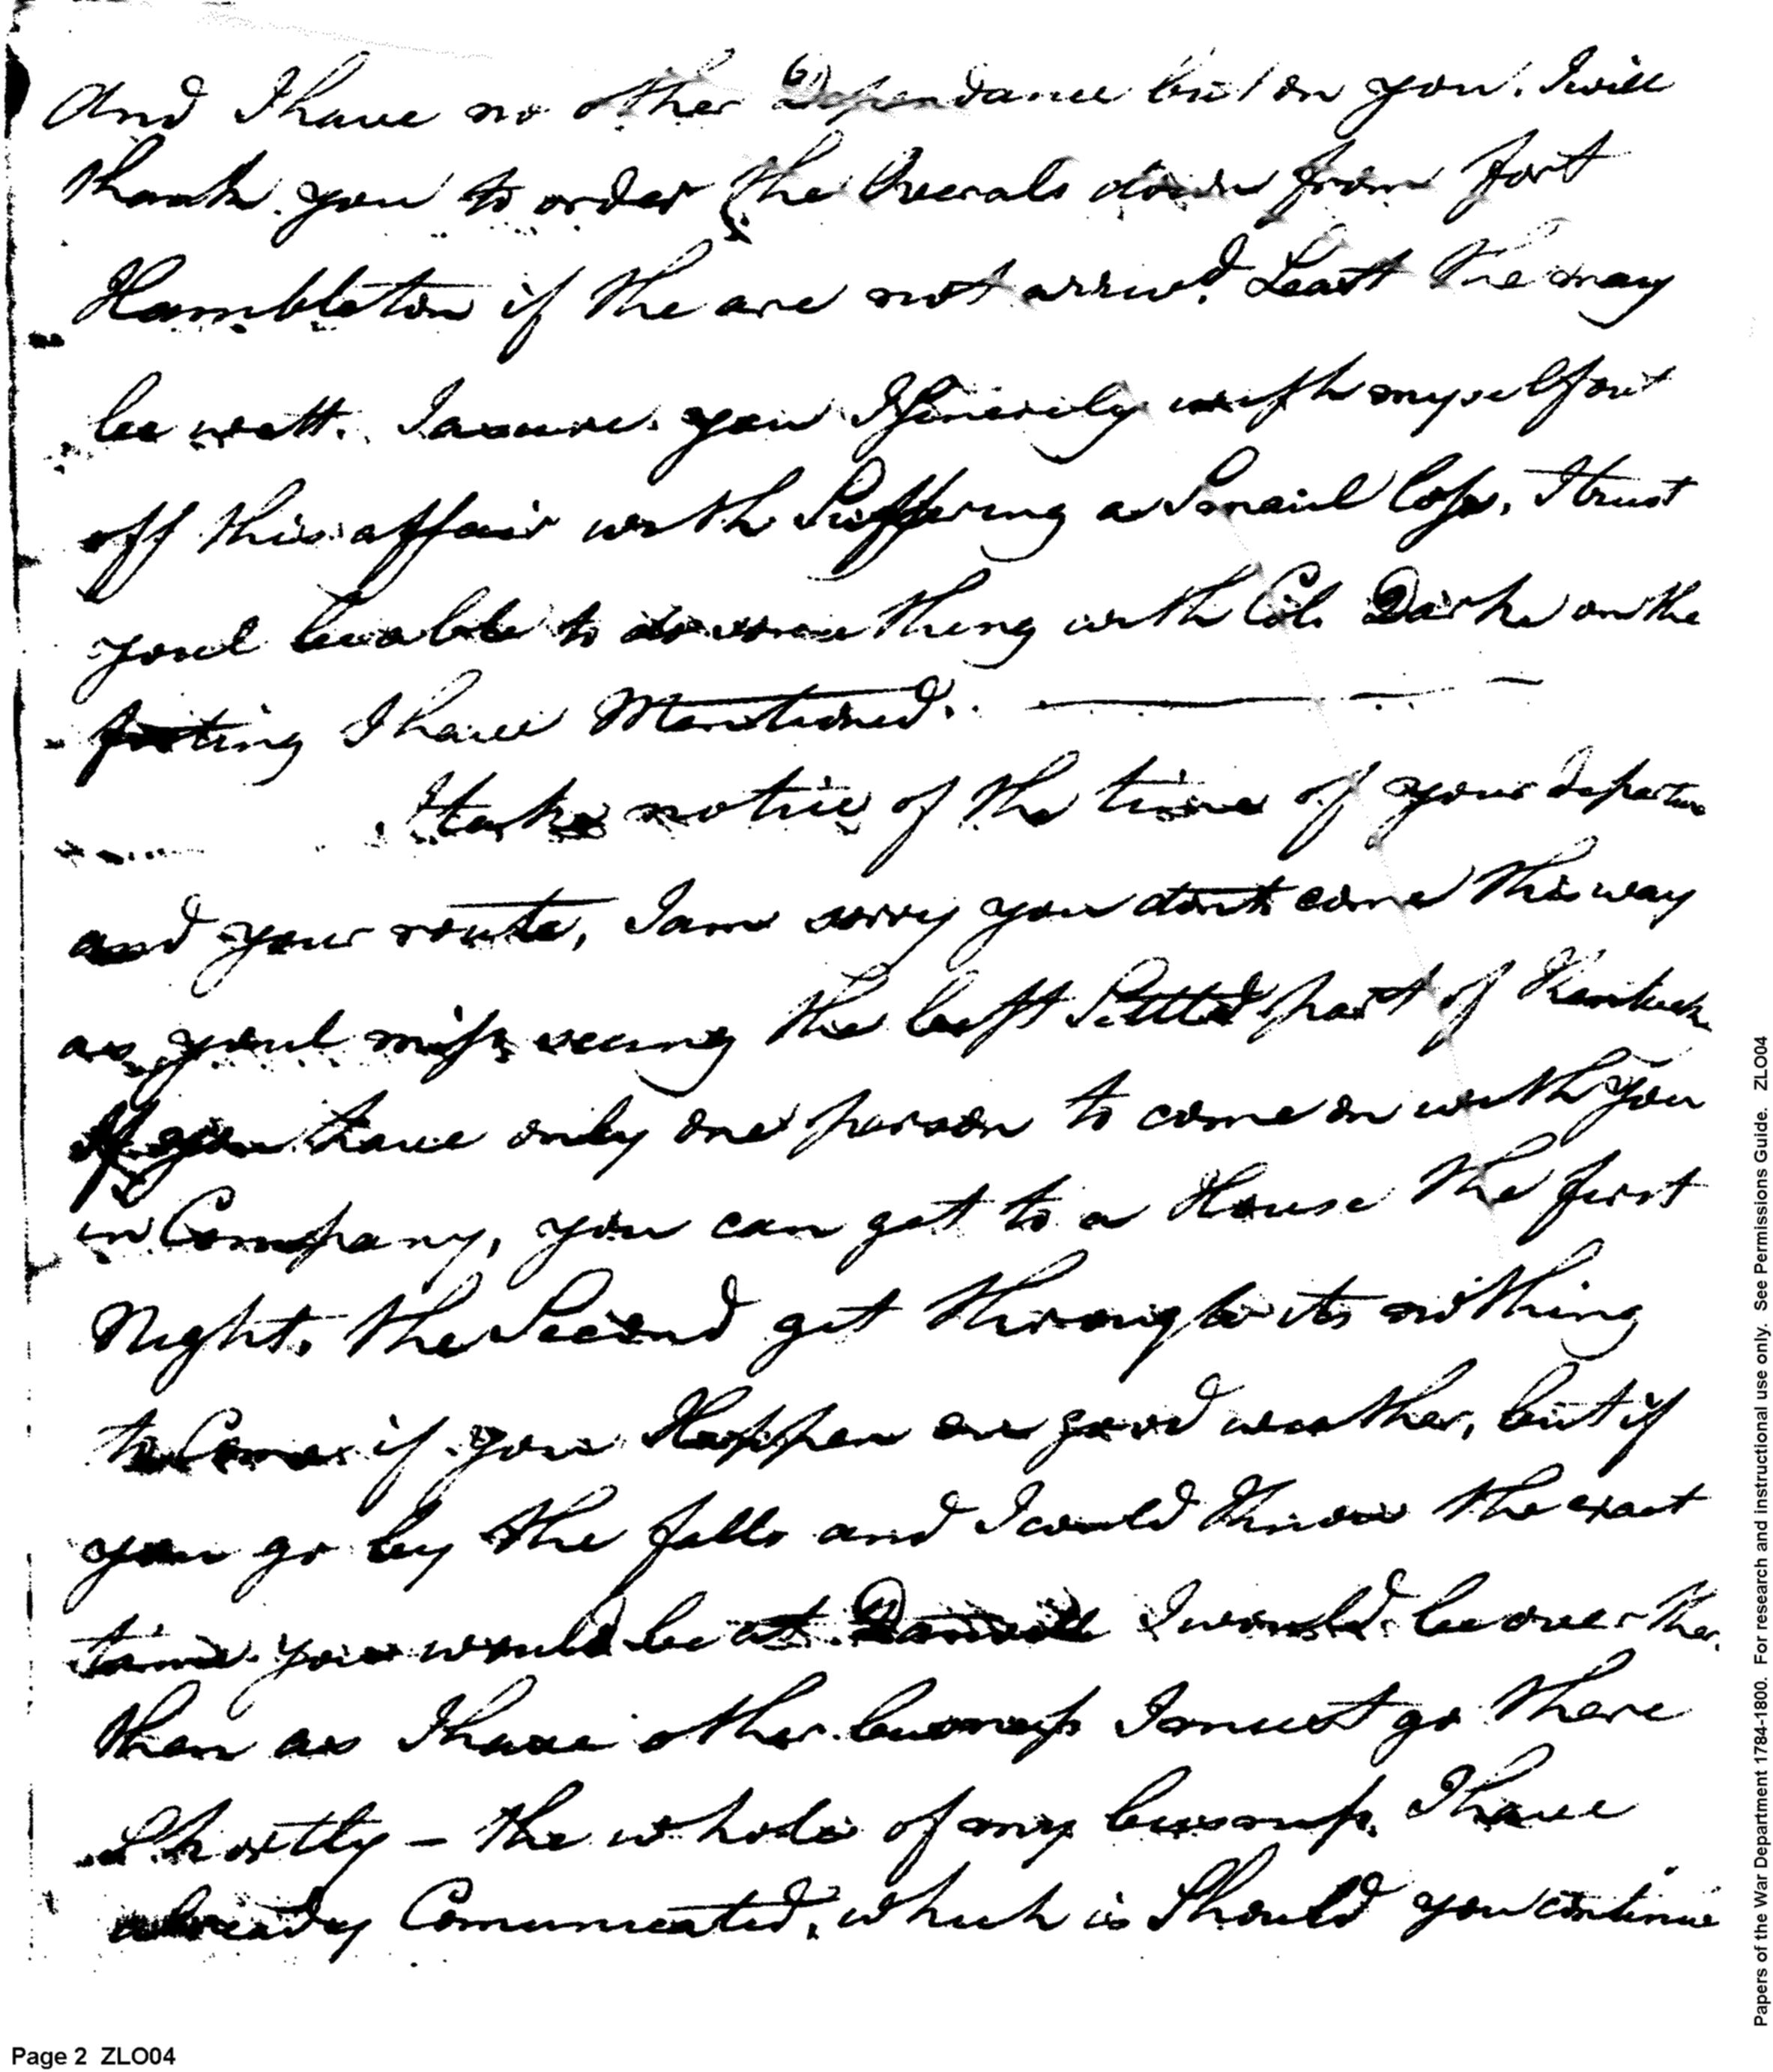 And I have no other Dependance but on you. I will
thank you to order the Overals down from fort
Hambleton if the are not arriv'd. Leastt the may
be wett. I assure you I Sincerely wish myself out
off this affair with Suffering a Smaul loss, I trust
youl be able to do some thing with Col. Darke on the
footing I have Mentioned.
I take notice of the time of your departure
and your route, I am sorry you dont come this way
as youl miss seeing the best Settled part of Kentuck
If you have only one person to come on with you
in Company, you can get to a House the first
Night, the Second get through its nothing
to Come if you Happen on good weather, but if
you go by the falls and I could Know the exact
time you would be at Danvill I would be over ther
then as I have other business I must go there
Shortly – the whole of my business I have
already Comunicated, which is Should you continue
Page 2 ZLO04
Papers of the War Department 1784-1800. For research and instructional use only. See Permissions Guide. ZLO04